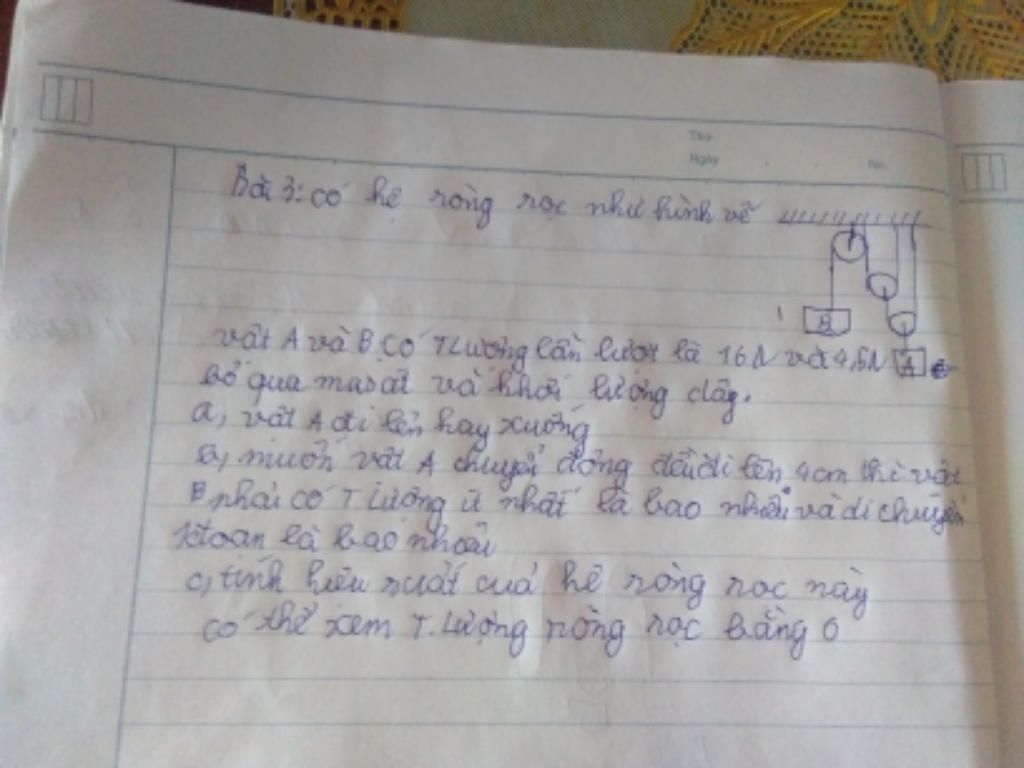 Thứ
Ngày
No.
Bài 3: có hệ ròng rọc như hình vẽ
B
vật A và B có T.Lượng lần lượt là 16N và 4,5N A
bỏ qua ma sát và khối lượng dây.
a, vật A đi lên hay xuống
b, muốn vật A chuyển động đều đi lên 4cm thì vật
B phải có T.Lượng ít nhất là bao nhiêu và di chuyển
là bao nhiêu
c, tính hiệu suất của hệ ròng rọc này
có thể xem T.Lượng ròng rọc bằng 0